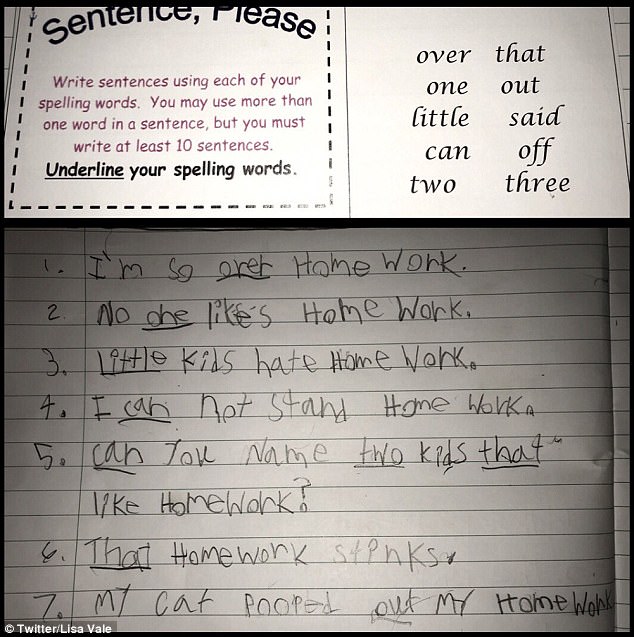 Sentence, Please
Write sentences using each of your
spelling words. You may use more than
one word in a sentence, but you must
write at least 10 sentences.
Underline your spelling words.
over that
one out
little said
can off
two three
1. I'm so over Home Work.
2. No one like's Home Work.
3. Little kids hate Home Work.
4. I can not stand Home Work.
5. can you Name two kids that
like HomeWork?
6. That Homework stinks.
7. My cat pooped out my Homework
© Twitter/Lisa Vale